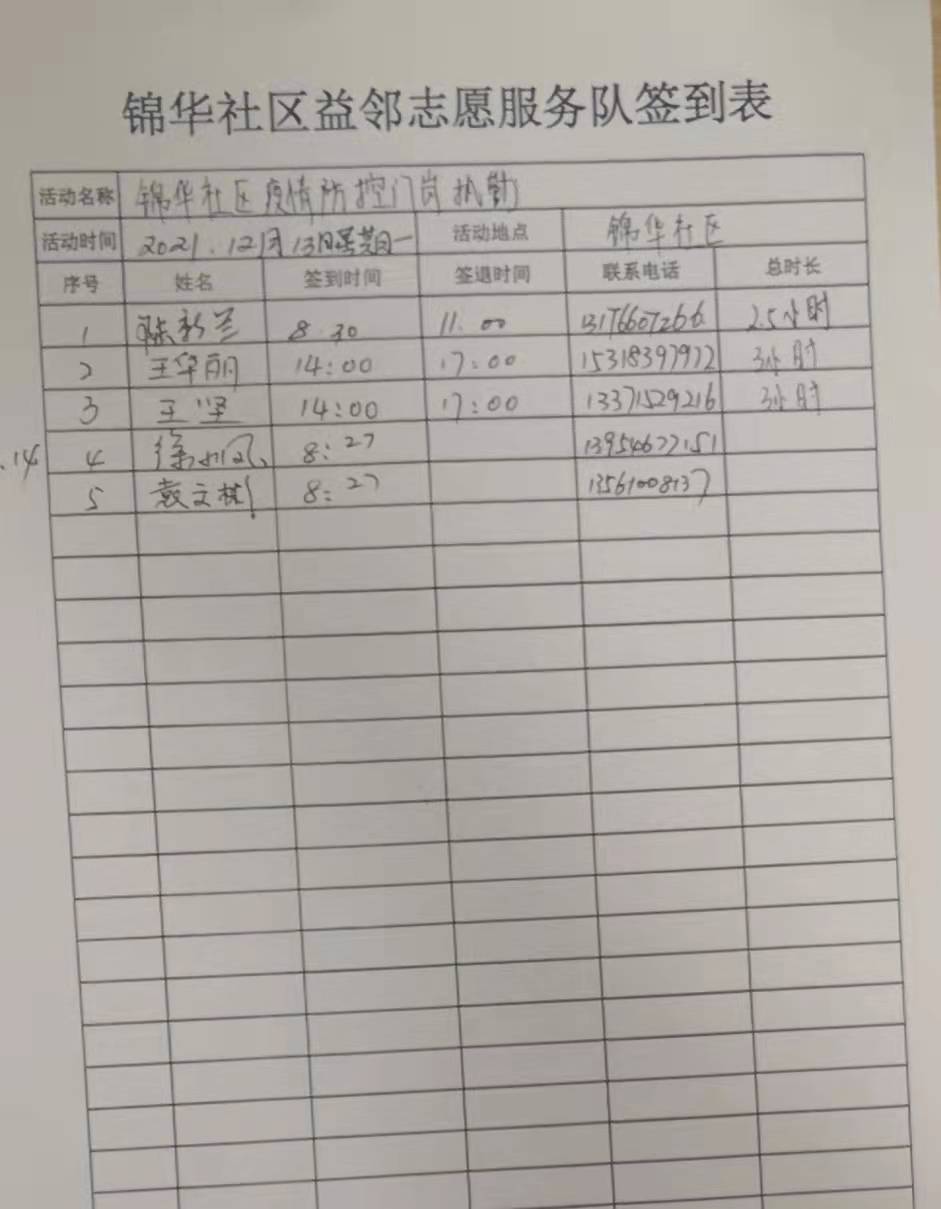 锦华社区益邻志愿服务队签到表
活动名称 锦华社区疫情防控门岗执勤
活动时间 2021.12月13日星期一 活动地点 锦华社区
序号 姓名 签到时间 签退时间 联系电话 总时长
1 陈新兰 8.30 11.00 13176607266 2.5小时
2 王华丽 14:00 17:00 15318397972 3小时
3 王坚 14:00 17:00 13371529216 3小时
.14 4 徐 8:27 13954677151
5 袁文彬 8:27 13561008137